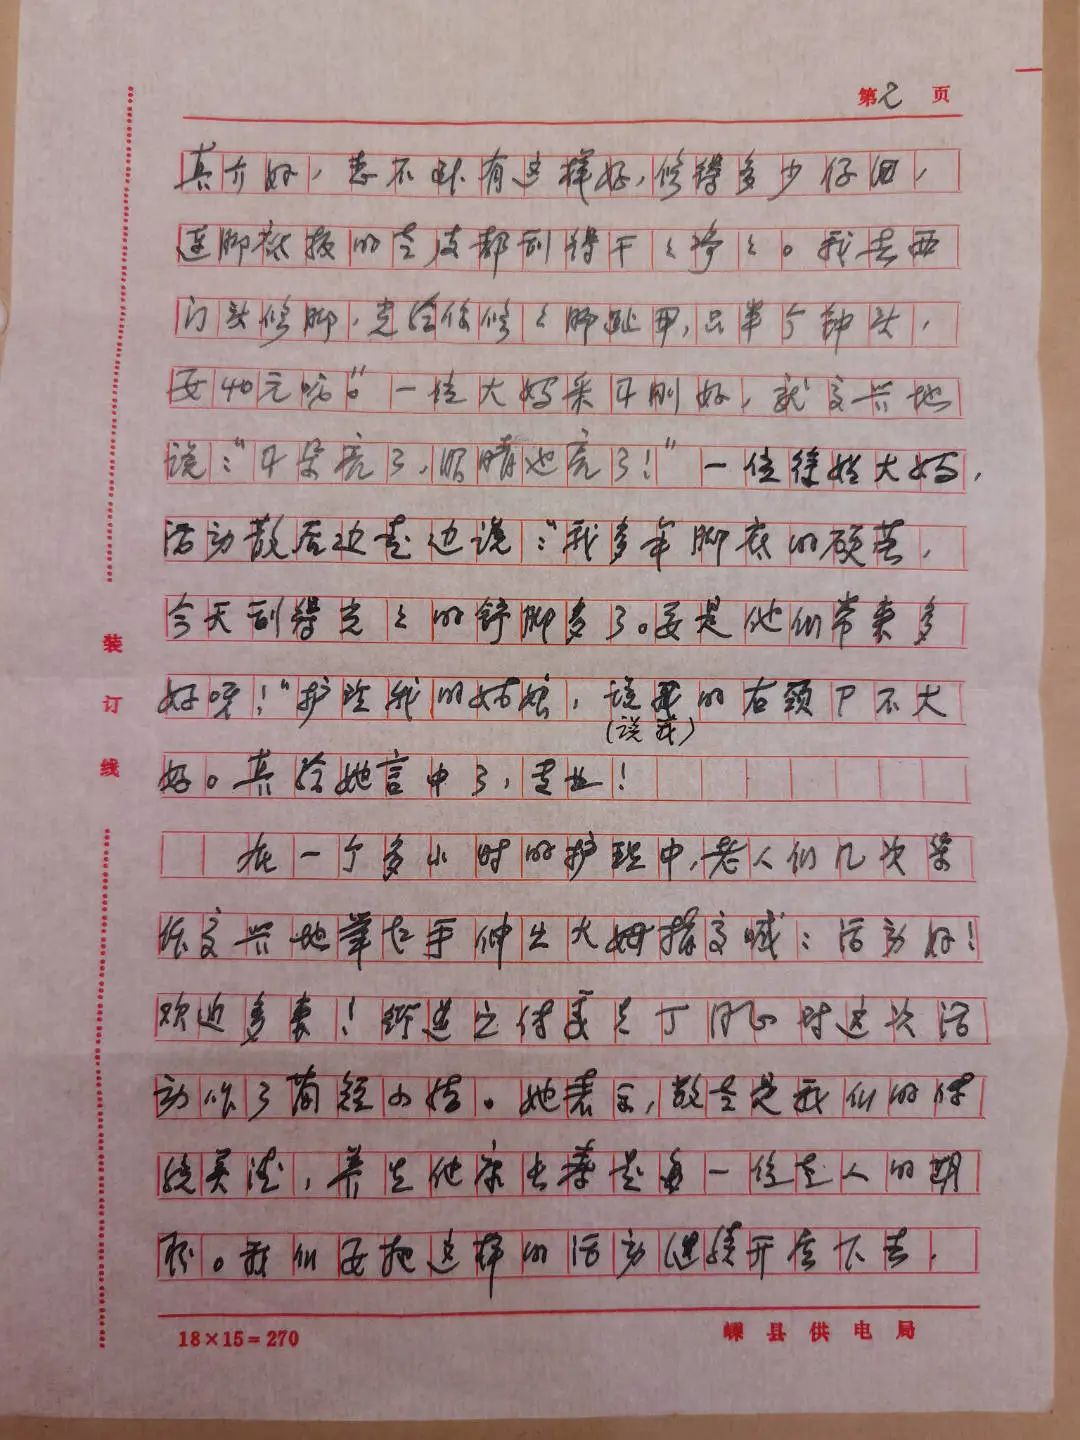 第2页
真亦好，意不料有这样好，修得多少仔细，
连脚底板的老皮都刮得干〻净〻。我去西
门头修脚，光给你修〻脚趾甲，只半个钟头，
要40元呢。"一位大妈采耳刚好，就高兴地
说："耳朵亮了，眼睛也亮了！"一位徐姓大妈，
活动散后边走边说："我多年脚底的硬茧，
今天刮得光〻的舒脚多了。要是他们常来多
好呀！"护理我的姑娘，说我的右颈户不大
（说我）
好。真给她言中了，专业！
在一个多小时的护理中，老人们几次
高兴地举起手伸出大姆指高喊：活动好！
欢迎多来！街道立付主任丁月 对这次活
动作了简短小结。她表示，敬老是我们的传
统美德，养生健康长寿是每一位老人的期
盼。我们要把这样的活动继续开展下去，
装订线
18×15=270
嵊县供电局